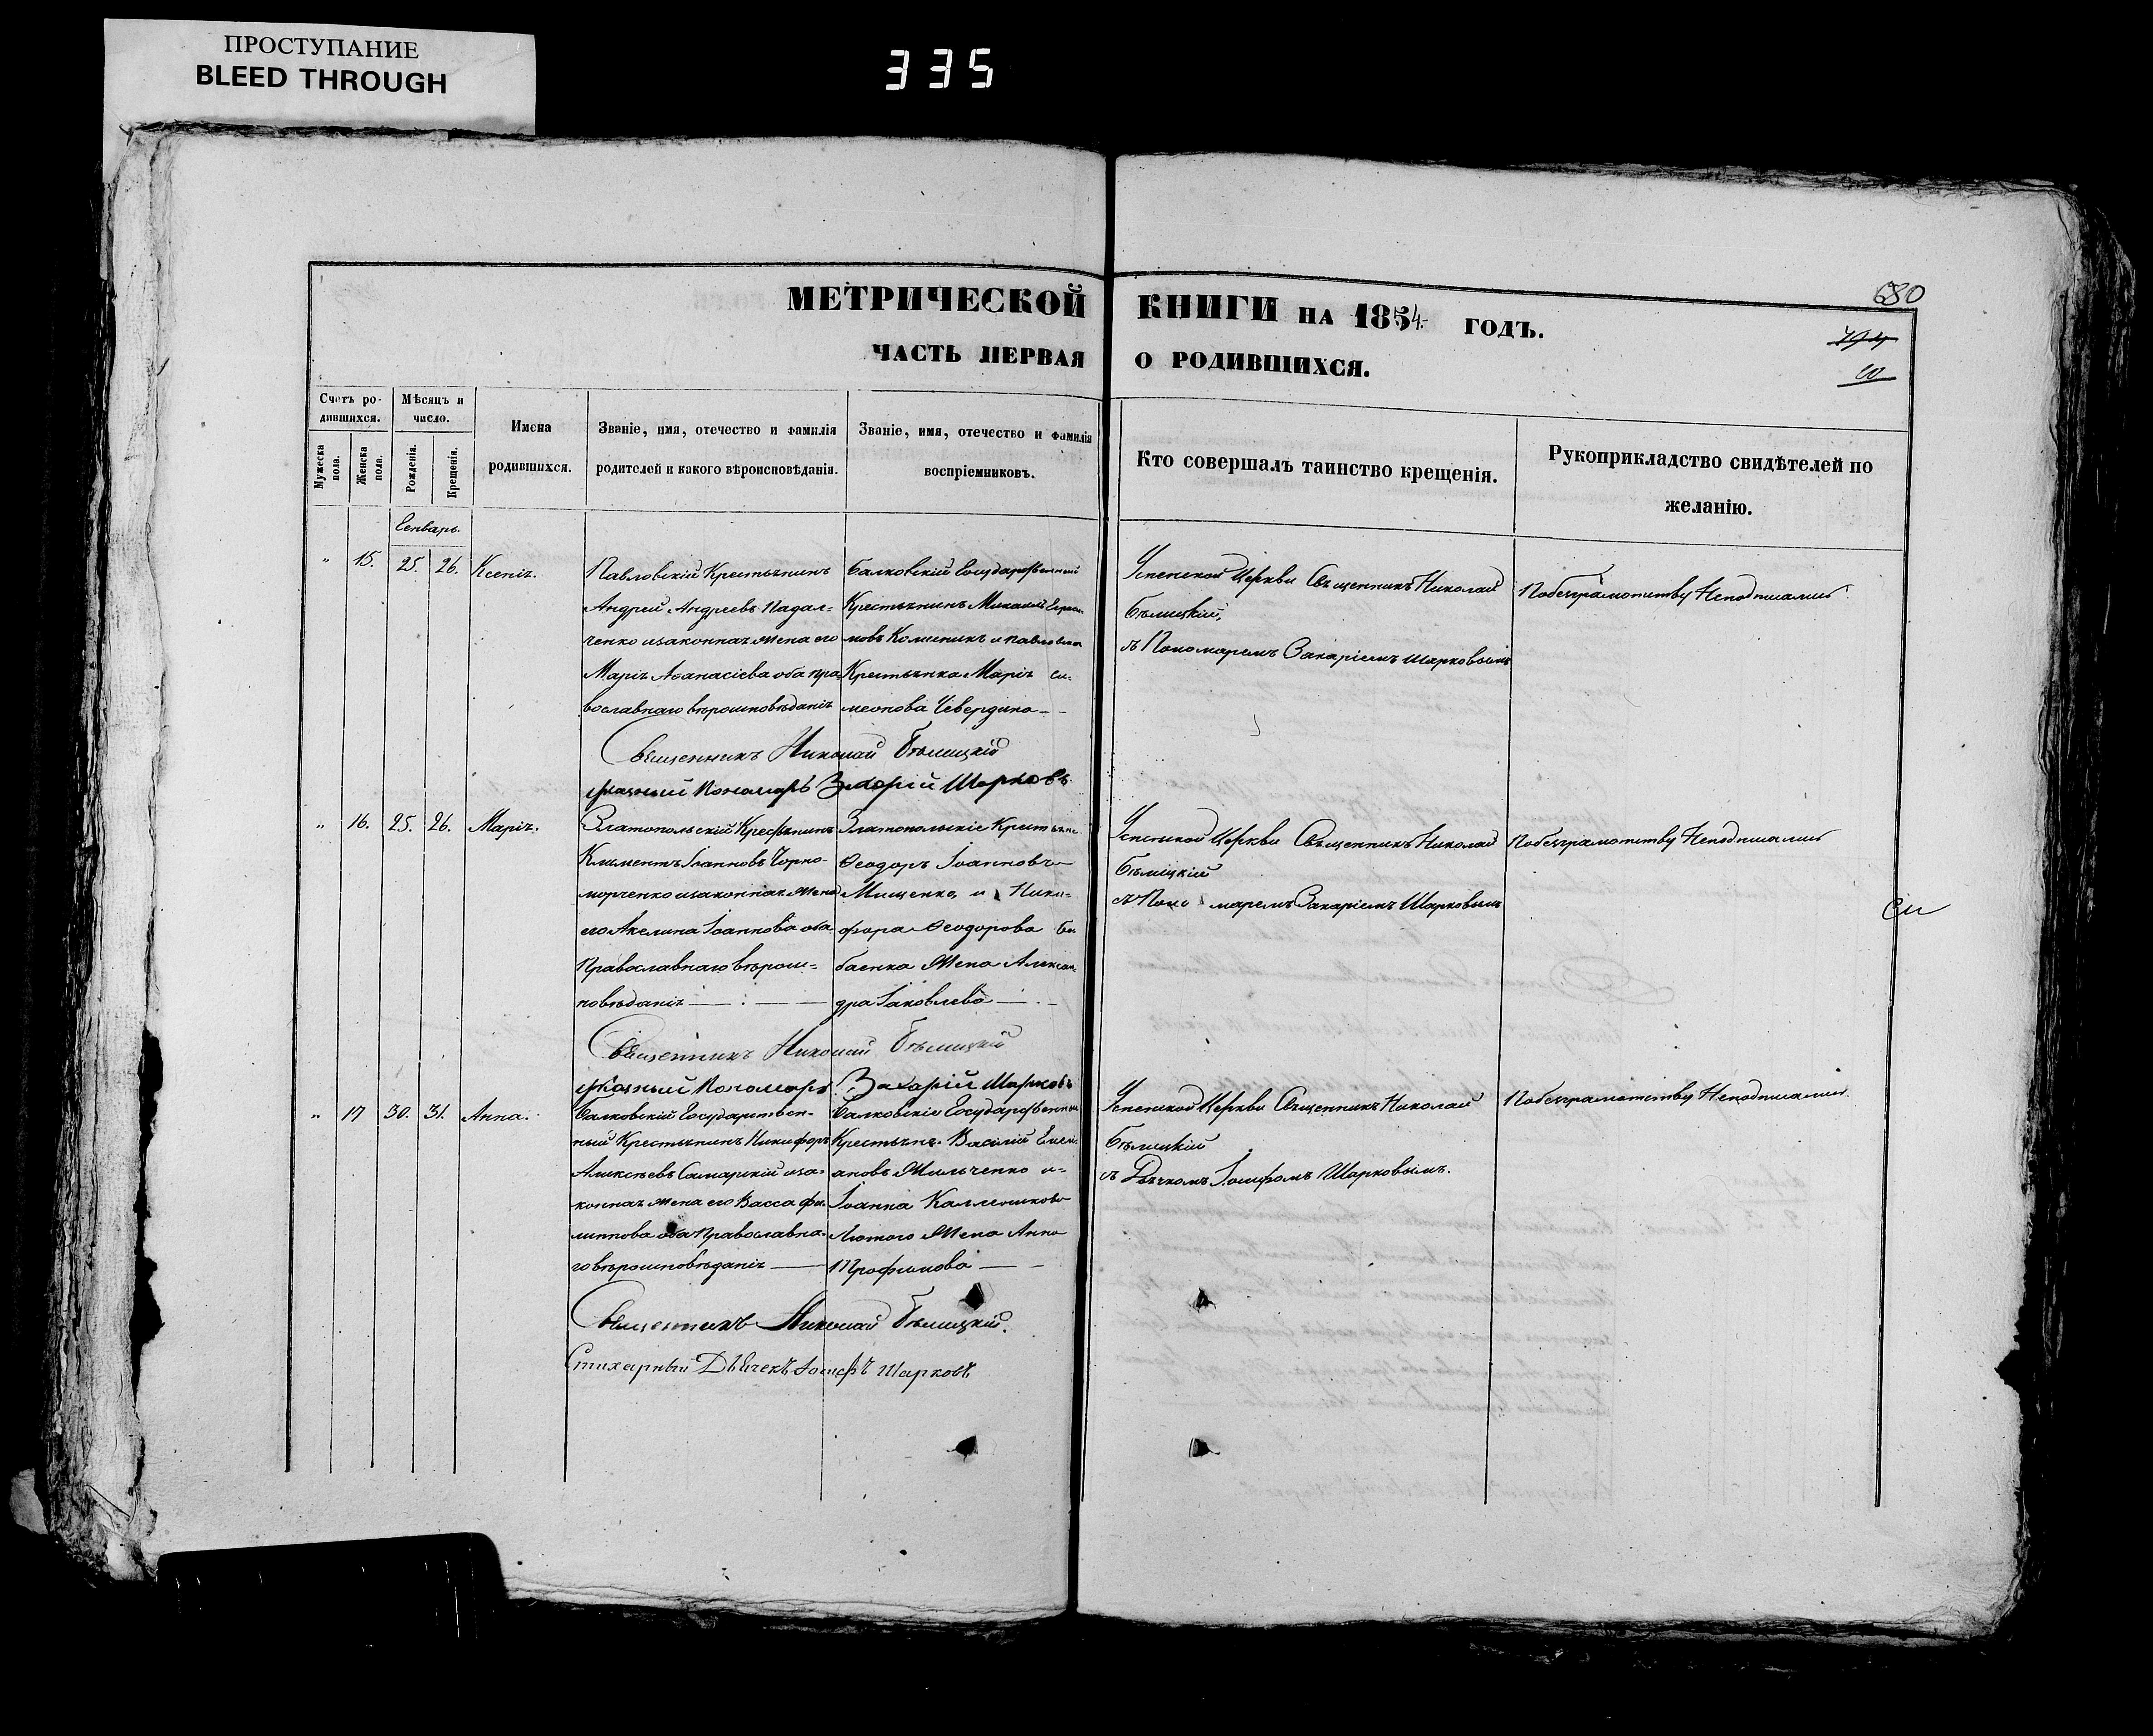 ПРОСТУПАНИЕ
BLEED THROUGH
335
680
МЕТРИЧЕСКОЙ КНИГИ НА 1854 ГОДЪ.
ЧАСТЬ ПЕРВАЯ О РОДИВШИХСЯ.
Счетъ ро-
дившихся.
Мужеска пола.
Женска пола.
Мѣсяцъ и
число.
Рожденія.
Крещенія.
Имена
родившихся.
Званіе, имя, отечество и фамилія
родителей и какого вѣроисповѣданія.
Званіе, имя, отечество и фамилія
воспріемниковъ.
Кто совершалъ таинство крещенія.
Рукоприкладство свидѣтелей по
желанію.
Генварь.
" 15. 25. 26. Ксенія.
Павловскій Крестьянинъ
Андрей Андреевъ Падал=
ченко изаконная жена его
Марія Аѳанасіева оба пра
вославнаго вѣроисповѣданія
Балковскій Государственный
Крестьянинъ Михаилъ
мовъ и павловская
Крестьянка Марія Си=
меонова
Успенской Церкви Священникъ Николай
Бѣлицкій,
съ Пономаремъ Захаріемъ Шарковымъ
Побезграмотству Неподписались
Священникъ Николай Бѣлицкій
указный Пономарь Захарій Шарковъ
" 16. 25. 26. Марія.
Златопольскій Крестьянинъ
Климентъ Іоанновъ Чорно-
морченко изаконная жена
его Акелина Іоаннова оба
Православнаго вѣроис=
повѣданія
Златопольскіе Крестьяне
Ѳеодоръ Іоанновъ
Мищенко, и Ники=
фора Ѳеодорова Ба
баенка Жена Алексан
дра Іаковлева
Успенской Церкви Священникъ Николай
Бѣлицкій
съ Поно маремъ Захаріемъ Шарковымъ
Побезграмотству Неподписались
Священникъ Николай Бѣлицкій
указный Пономарь Захарій Шарковъ
" 17 30. 31. Анна.
Балковскій Государствен-
ный Крестьянинъ Никифоръ
Алексѣевъ Самарскій иза=
конная жена его Васса фи
липпова оба Православна
го вѣроисповѣданія
Балковскіе Государственные
Крестьяне Василій Емели
ановъ Жильченко и=
Іоанна Каллиникова
Лютого Жена Анна
Трофимова
Успенской Церкви Священникъ Николай
Бѣлицкій
съ Дьячкомъ Іосифомъ Шарковымъ.
Побезграмотству Неподписались.
Священникъ Николай Бѣлицкій.
Стихарный Дьячекъ Іосифъ Шарковъ